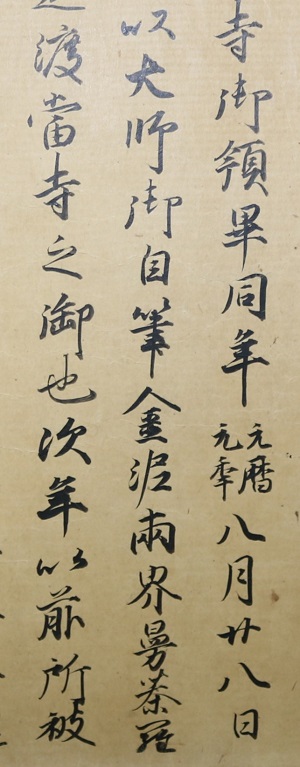 寺御領畢同年元暦元年八月廿八日
以大師御自筆金泥兩界曼荼羅
渡當寺之御也次年以前所被